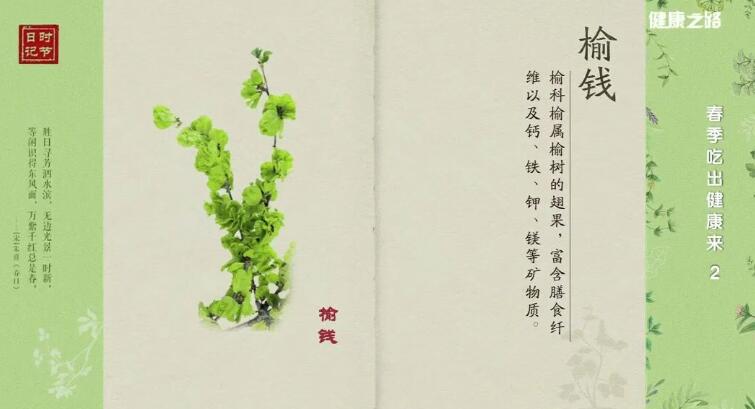 时节
日记
胜日寻芳泗水滨，无边光景一时新，
等闲识得东风面，万紫千红总是春。
——[宋]朱熹《春日》
榆钱
健康之路
榆钱
榆科榆属榆树的翅果，富含膳食纤
维以及钙、铁、钾、镁等矿物质。
春季吃出健康来 2